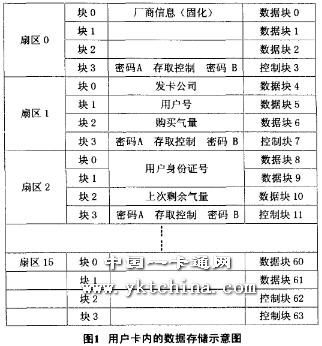 扇区 0
块 0 厂商信息（固化） 数据块 0
块 1 数据块 1
块 2 数据块 2
块 3 密码A 存取控制 密码 B 控制块 3
扇区 1
块 0 发卡公司 数据块 4
块 1 用户号 数据块 5
块 2 购买气量 数据块 6
块 3 密码A 存取控制 密码 B 控制块 7
扇区 2
块 0 用户身份证号 数据块 8
块 1 数据块 9
块 2 上次剩余气量 数据块 10
块 3 密码A 存取控制 密码 B 控制块 11
扇区 15
块 0 数据块 60
块 1 数据块 61
块 2 控制块 62
块 3 控制块 63
中国一卡通网
www.yktchina.com
图1 用户卡内的数据存储示意图